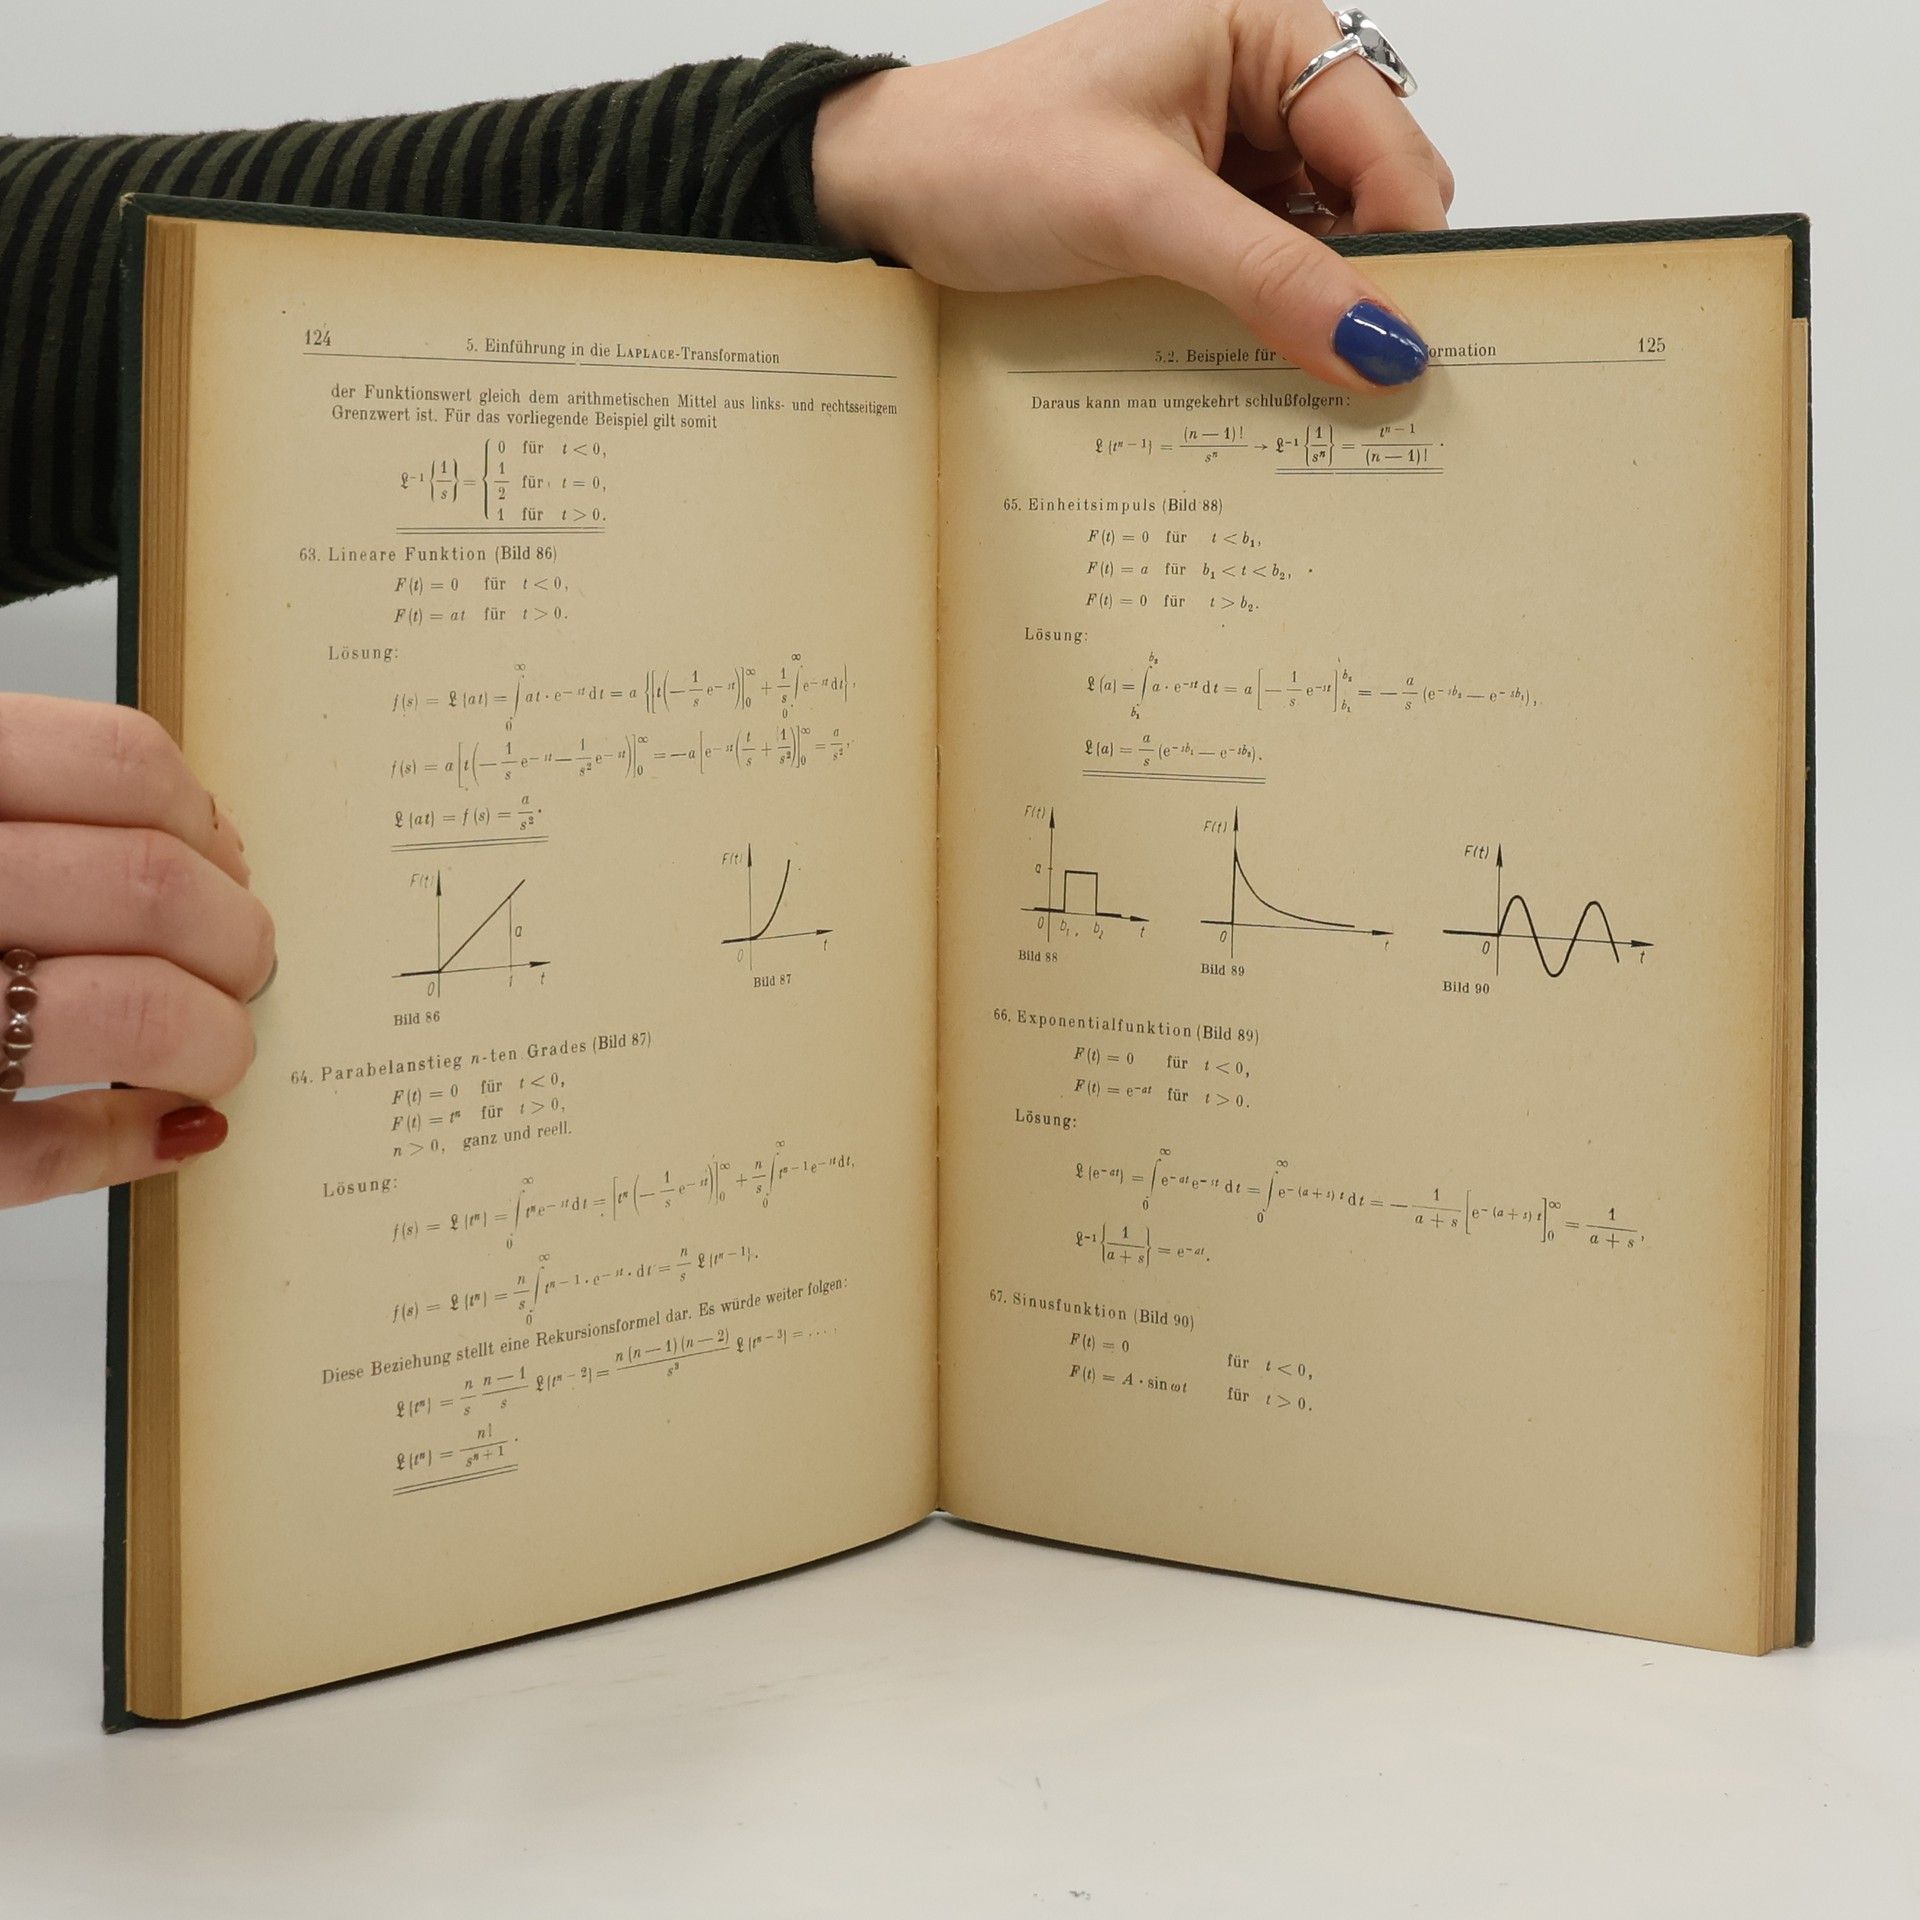 124
5. Einführung in die LAPLACE-Transformation
der Funktionswert gleich dem arithmetischen Mittel aus links- und rechtsseitigem
Grenzwert ist. Für das vorliegende Beispiel gilt somit
𝔏⁻¹{1/s} = { 0 für t < 0,
1/2 für t = 0,
1 für t > 0.
63. Lineare Funktion (Bild 86)
F(t) = 0 für t < 0,
F(t) = at für t > 0.
Lösung:
f(s) = 𝔏{at} = ∫₀^∞ at · e^(−st) dt = a {[t(−1/s e^(−st))]₀^∞ + 1/s ∫₀^∞ e^(−st) dt},
f(s) = a [t(−1/s e^(−st) − 1/s² e^(−st))]₀^∞ = −a [e^(−st)(t/s + 1/s²)]₀^∞ = a/s²,
𝔏{at} = f(s) = a/s².
F(t)
a
0
1
t
Bild 86
F(t)
0
t
Bild 87
64. Parabelanstieg n-ten Grades (Bild 87)
F(t) = 0 für t < 0,
F(t) = tⁿ für t > 0,
n > 0, ganz und reell.
Lösung:
f(s) = 𝔏{tⁿ} = ∫₀^∞ tⁿ e^(−st) dt = [tⁿ(−1/s e^(−st))]₀^∞ + n/s ∫₀^∞ t^(n−1) e^(−st) dt,
f(s) = 𝔏{tⁿ} = n/s ∫₀^∞ t^(n−1) · e^(−st) · dt = n/s 𝔏{t^(n−1)}.
Diese Beziehung stellt eine Rekursionsformel dar. Es würde weiter folgen:
𝔏{tⁿ} = n/s (n−1)/s 𝔏{t^(n−2)} = n(n−1)(n−2)/s³ 𝔏{t^(n−3)} = ....
𝔏{tⁿ} = n!/s^(n+1).
5.2. Beispiele für
ormation
125
Daraus kann man umgekehrt schlußfolgern:
𝔏{t^(n−1)} = (n−1)!/sⁿ → 𝔏⁻¹{1/sⁿ} = t^(n−1)/(n−1)!.
65. Einheitsimpuls (Bild 88)
F(t) = 0 für t < b₁,
F(t) = a für b₁ < t < b₂,
F(t) = 0 für t > b₂.
Lösung:
𝔏{a} = ∫_(b₁)^(b₂) a · e^(−st) dt = a [−1/s e^(−st)]_(b₁)^(b₂) = −a/s (e^(−sb₂) − e^(−sb₁)),
𝔏{a} = a/s (e^(−sb₁) − e^(−sb₂)).
F(t)
a
0 b₁ b₂ t
Bild 88
F(t)
0
t
Bild 89
F(t)
0
t
Bild 90
66. Exponentialfunktion (Bild 89)
F(t) = 0 für t < 0,
F(t) = e^(−at) für t > 0.
Lösung:
𝔏{e^(−at)} = ∫₀^∞ e^(−at) e^(−st) dt = ∫₀^∞ e^(−(a+s)t) dt = −1/(a+s) [e^(−(a+s)t)]₀^∞ = 1/(a+s),
𝔏⁻¹{1/(a+s)} = e^(−at).
67. Sinusfunktion (Bild 90)
F(t) = 0 für t < 0,
F(t) = A · sin ωt für t > 0.